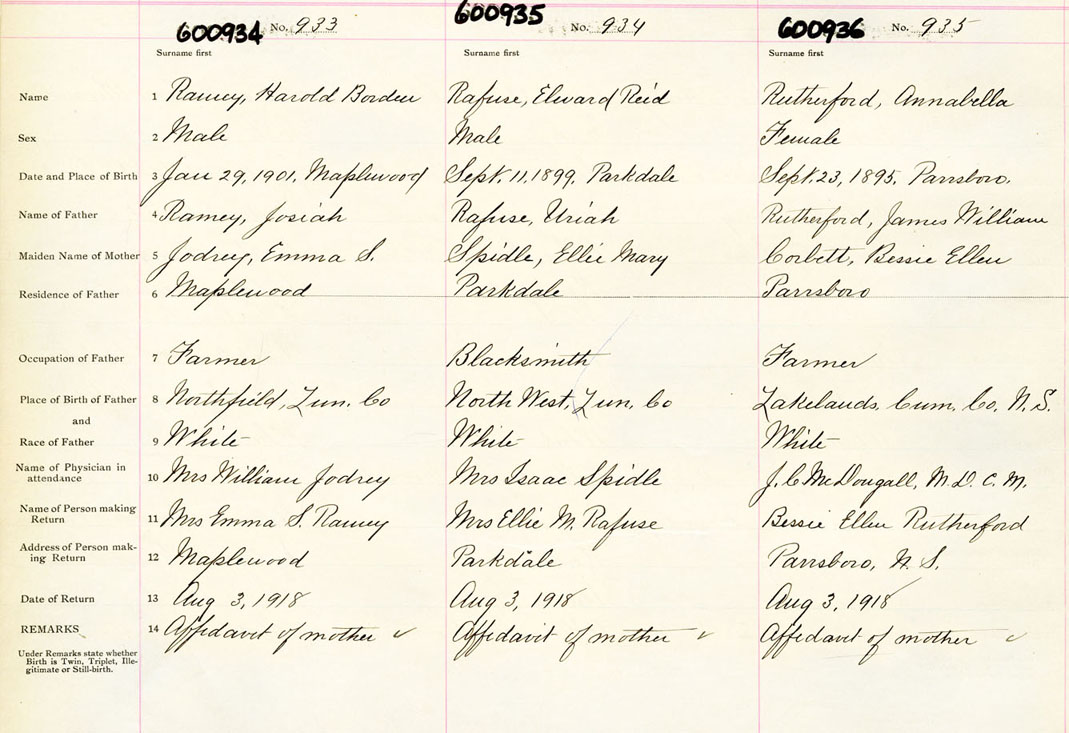 600934 No. 933 600935 No. 934 600936 No. 935
Surname first Surname first Surname first
Name 1 Ramey, Harold Borden Rafuse, Elward Reid Rutherford, Annabella
Sex 2 Male Male Female
Date and Place of Birth 3 Jan 29, 1901, Maplewood Sept. 11, 1899, Parkdale Sept. 23, 1895, Parrsboro,
Name of Father 4 Ramey, Josiah Rafuse, Uriah Rutherford, James William
Maiden Name of Mother 5 Jodrey, Emma S. Spidle, Ellie Mary Corbett, Bessie Ellen
Residence of Father 6 Maplewood Parkdale Parrsboro
Occupation of Father 7 Farmer Blacksmith Farmer
Place of Birth of Father 8 Northfield, Lun. Co North West, Lun, Co Lakelands, Cum, Co, N. S.
and
Race of Father 9 White White White
Name of Physician in
attendance 10 Mrs William Jodrey Mrs Isaac Spidle J. C McDougall, M. D. C. M.
Name of Person making
Return 11 Mrs Emma S. Ramey Mrs Ellie M. Rafuse Bessie Ellen Rutherford
Address of Person mak-
ing Return 12 Maplewood Parkdale Parrsboro, N. S.
Date of Return 13 Aug 3, 1918 Aug 3, 1918 Aug 3, 1918
REMARKS 14 Affidavit of mother ✓ Affidavit of mother ✓ Affidavit of mother ✓
Under Remarks state whether
Birth is Twin, Triplet, Ille-
gitimate or Still-birth.